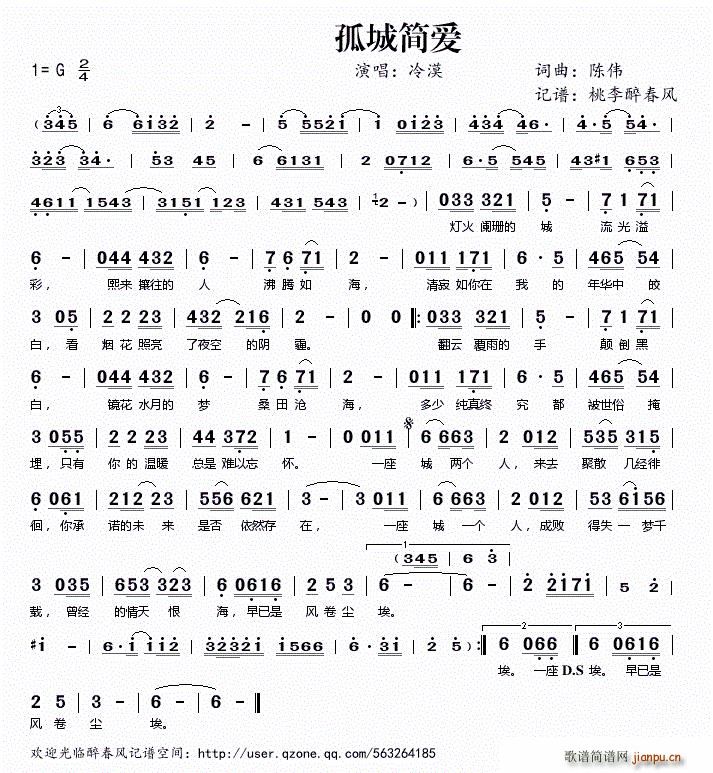 孤城简爱
1=G 2/4 演唱：冷漠 词曲：陈伟
记谱：桃李醉春风
(345 | 6 6132 | 2 - | 5 5521 | 1 0123 | 434 46· | 4·5 54· |
323 34· | 53 45 | 6 6131 | 2 0712 | 6·5 545 | 43#1 653 |
4611 1543 | 3151 123 | 431 543 | 1/2 2 - ) | 033 321 | 5 - | 71 71 |
灯火 阑珊的 城 流光溢
6 - | 044 432 | 6 - | 76 71 | 2 - | 011 171 | 6·5 | 465 54 |
彩， 熙来 攘往的 人 沸腾如 海， 清寂 如你在 我的 年华中 皎
3 05 | 22 23 | 432 216 | 2 - | 0 0 ‖: 033 321 | 5 - | 71 71 |
白，看 烟花照亮 了夜空 的阴 霾。 翻云 覆雨的 手 颠倒黑
6 - | 044 432 | 6 - | 76 71 | 2 - | 011 171 | 6·5 | 465 54 |
白， 镜花 水月的 梦 桑田沧 海， 多少 纯真终 究都 被世俗 掩
3 055 | 22 23 | 44 372 | 1 - | 0 011 | 6 663 | 2 012 | 535 315 |
埋，只有 你的温暖 总是难以忘 怀。 一座 城 两个 人，来去 聚散 几经徘
6 061 | 212 23 | 556 621 | 3 - | 3 011 | 6 663 | 2 012 | 53 6156 |
徊，你承 诺的未来 是否 依然存 在， 一座 城 一个 人，成败 得失一梦千
1
(345 | 6 3 |
3 035 | 653 323 | 6 0616 | 2 5 | 6 - | 6 - | 2 2171 | 5 2 |
载，曾经 的情天 恨 海，早已是 风卷尘 埃。
#1 - | 6·1 112 | 32321 231 | 1566 | 6·31 | 2 5) :‖ 6 066 :‖ 6 0616 |
2 3
埃。一座 D.S 埃。早已是
2 5 | 3 - | 6 - | 6 - ‖
风卷 尘 埃。
欢迎光临醉春风记谱空间：http://user.qzone.qq.com/563264185
歌谱简谱网 jianpu.cn